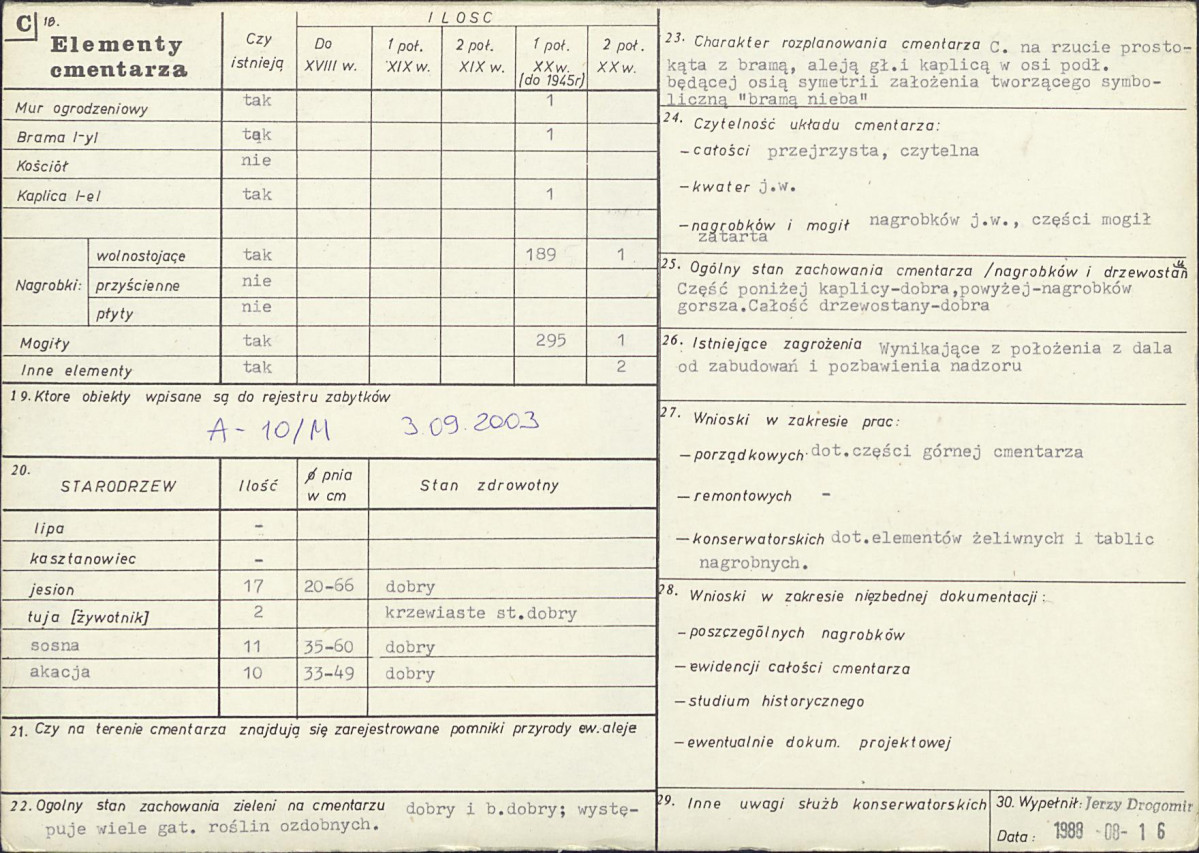 C 18.
Elementy cmentarza
Czy istnieją
ILOSC
Do XVIII w.
1 poł. XIX w.
2 poł. XIX w.
1 poł. XX w. [do 1945r]
2 poł. XX w.
Mur ogrodzeniowy tak 1
Brama /-y/ tak 1
Kościół nie
Kaplica /-e/ tak 1
Nagrobki:
wolnostojące tak 189 1
przyścienne nie
płyty nie
Mogiły tak 295 1
Inne elementy tak 2
19. Ktore obiekty wpisane są do rejestru zabytków
A-10/M 3.09.2003
20.
STARODRZEW Ilość ø pnia w cm Stan zdrowotny
lipa -
kasztanowiec -
jesion 17 20-66 dobry
tuja [żywotnik] 2 krzewiaste st.dobry
sosna 11 35-60 dobry
akacja 10 33-49 dobry
21. Czy na terenie cmentarza znajdują się zarejestrowane pomniki przyrody ew. aleje
22. Ogolny stan zachowania zieleni na cmentarzu dobry i b.dobry; wystę-
puje wiele gat. roślin ozdobnych.
23. Charakter rozplanowania cmentarza C. na rzucie prosto-
kąta z bramą, aleją gł.i kaplicą w osi podł.
będącej osią symetrii założenia tworzącego symbo-
liczną "bramą nieba"
24. Czytelność układu cmentarza:
- całości przejrzysta, czytelna
- kwater j.w.
- nagrobków i mogił nagrobków j.w., części mogił
zatarta
25. Ogólny stan zachowania cmentarza /nagrobków i drzewostan
Część poniżej kaplicy-dobra,powyżej-nagrobków
gorsza.Całość drzewostany-dobra
26. Istniejące zagrożenia Wynikające z położenia z dala
od zabudowań i pozbawienia nadzoru
27. Wnioski w zakresie prac:
- porządkowych dot.części górnej cmentarza
- remontowych -
- konserwatorskich dot.elementów żeliwnych i tablic
nagrobnych.
28. Wnioski w zakresie niezbędnej dokumentacji:
- poszczególnych nagrobków
- ewidencji całości cmentarza
- studium historycznego
- ewentualnie dokum. projektowej
29. Inne uwagi służb konserwatorskich
30. Wypełnił: Jerzy Drogomir
Data: 1988 -08- 16